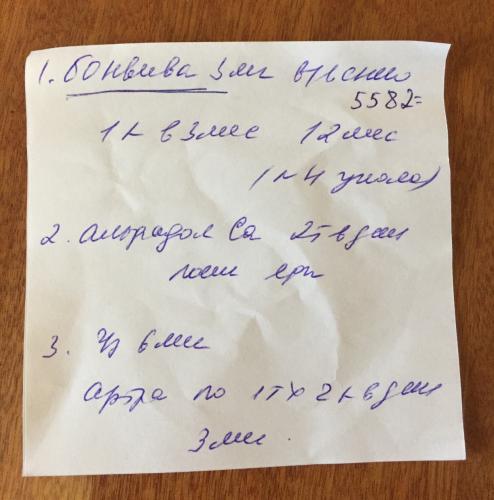 1. Бонвива 3мг в/венно
5582=
1 р в 3 мес 12 мес
(№4 укола)
2. Альфадол Са 2т в день
3. Чз 6 мес
Артра по 1т х 2 р в день
3 мес.